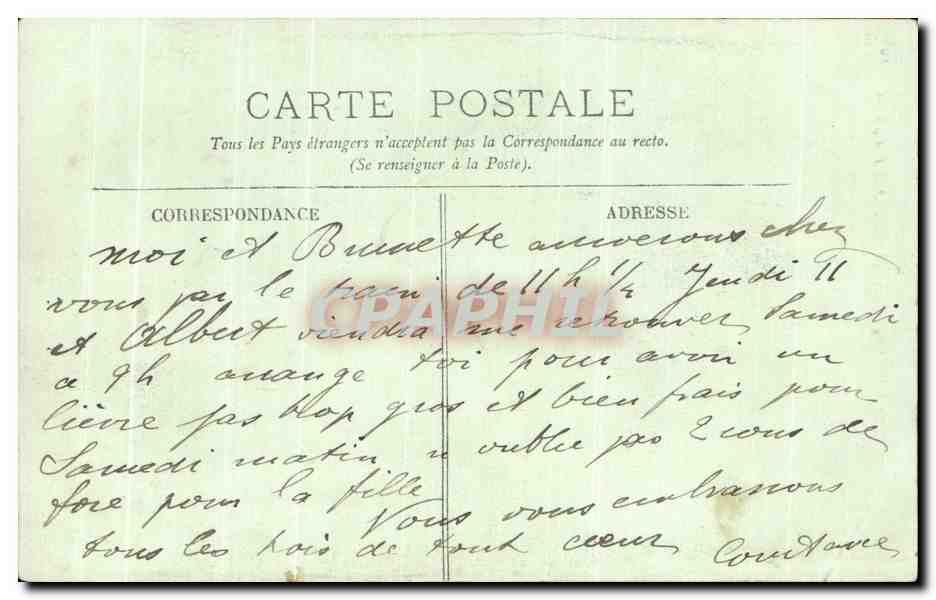 CARTE POSTALE
Tous les Pays étrangers n'acceptent pas la Correspondance au recto.
(Se renseigner à la Poste).
CORRESPONDANCE
ADRESSE
moi et Brunette arriverons chez
vous par le train de 11 h 1/4 Jeudi 11
et Albert viendra me retrouver Samedi
a 9h arrange toi pour avoir un
lièvre pas trop gros et bien frais pour
Samedi matin n oublie pas 2 sous de
foie pour la fille
Nous vous embrassons
tous les trois de tout cœur
CPAPHIL